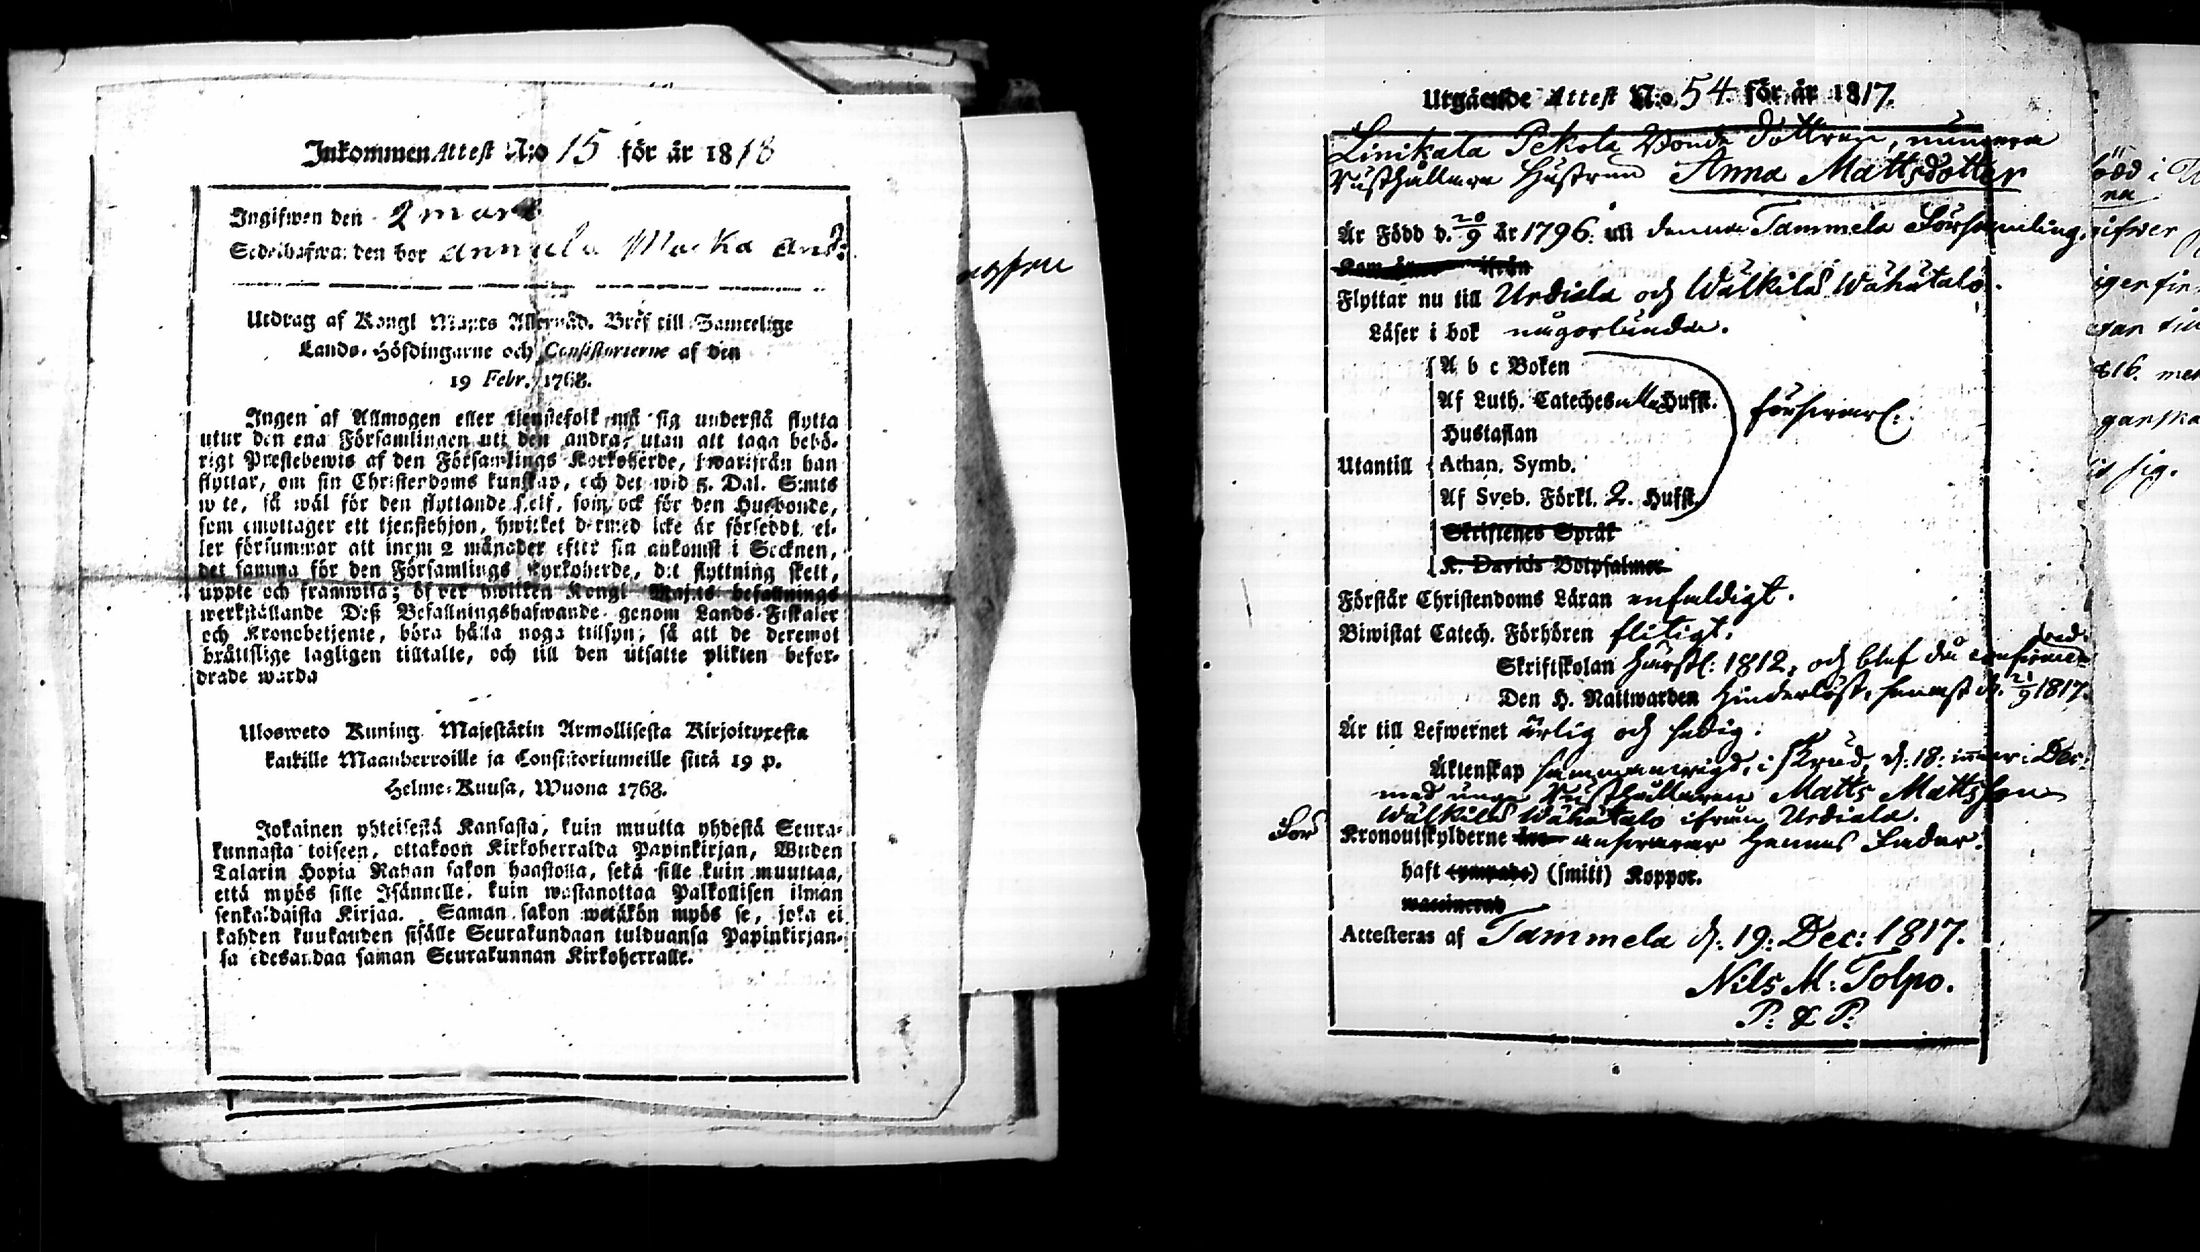 Inkommen Attest N:o 15 för år 1818
Ingifwen den 2 mars
Sedelhafwanden bor Annula Macka
Utdrag af Kongl Maj:ts Allernåd. Bref till Samtelige
Lands-Höfdingarne och Consistorierne af den
19 Febr. 1768.
Ingen af Allmogen eller tjenstefolk må sig understå flytta
utur den ena Församlingen uti den andra, utan att taga behö-
rigt Prestebewis af den Församlings Kyrkoherde, hwarifrån han
flyttar, om sin Christendoms kunskap, och det wid 5. Dal. S:mts
wite, så wäl för den flyttande self, som ock för den Husbonde,
som emottager ett tjenstehjon, hwilket dermed icke är försedt, el-
ler försummar att inom 2 månader efter sin ankomst i Socknen,
det samma för den Församlings Kyrkoherde, dit flyttning skett,
uppte och framwisa; öfwer hwilken Kongl Maj:ts befallnings
werkställande Deß Befallningshafwande genom Lands-Fiskaler
och Kronobetjente, böra hålla noga tillsyn, så att de deremot
brättslige lagligen tilltalte, och till den utsatte plikten befor-
drade warda
Ulosweto Kuning. Majestätin Armollisesta Kirjoituxesta
kaikille Maanherroille ja Consistoriumeille siitä 19 p.
Helme-Kuusa, Wuona 1768.
Jokainen yhteisestä Kansasta, kuin muutta yhdestä Seura-
kunnasta toiseen, ottakoon Kirkoherralda Papinkirjan, Wiiden
Talarin Hopia Rahan sakon haastolla, sekä sille kuin muuttaa,
että myös sille Isännelle, kuin wastanottaa Palkollisen ilman
senkaldaista Kirjaa. Saman sakon wetäkön myös se, joka ei
kahden kuukauden sisälle Seurakundaan tulduansa Papinkirjan-
sa edesandaa saman Seurakunnan Kirkoherralle.
Utgående Attest N:o 54 för år 1817.
Linikala Pekola Bonde dottren, numera
Rusthållare Hustrun Anna Mattsdotter
Är Född d. 20/9 år 1796. uti denna Tammela Församling.
Kom ifrån
Flyttar nu till Urdiala och Wälkilä Wähätalo.
Läser i bok någorlunda.
A b c Boken
Af Luth. Cateches alla Hufst.
Hustaflan försvarl:
Utantill Athan. Symb.
Af Sveb. Förkl. 2. Hufst.
Skriftenes Språk
K. Davids Botpsalmer
Förstår Christendoms Läran enfaldigt.
Biwistat Catech. Förhören flitigt.
Skriftskolan 1812, och blef då confirmerad.
Den H. Nattwarden hinderlöst, senast d. 21/9 1817.
Är till Lefwernet ärlig och sedig.
Äktenskap sammanvigd, i d: 18: Dec:
med unge Rusthållaren Matts Mattsson
Wälkilä Wähätalo ifrån Urdiala.
För Kronoutskylderne ansvarar Hennes Fader.
haft (ympade) (smitt) Koppor.
waccinerad
Attesteras af Tammela d: 19: Dec: 1817.
Nils M: Tolpo.
P: & P: